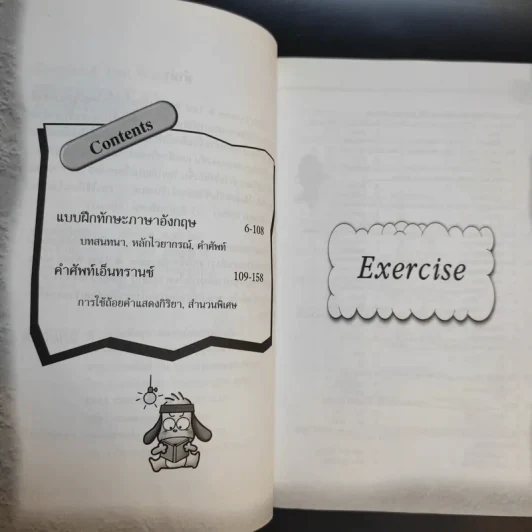 Contents
แบบฝึกทักษะภาษาอังกฤษ 6-108
บทสนทนา, หลักไวยากรณ์, คำศัพท์
คำศัพท์เอ็นทรานซ์ 109-158
การใช้ถ้อยคำแสดงกิริยา, สำนวนพิเศษ
Exercise